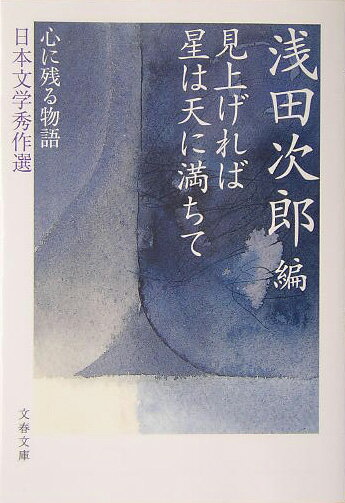 浅田次郎 編
見上げれば
星は天に満ちて
心に残る物語
日本文学秀作選
文春文庫